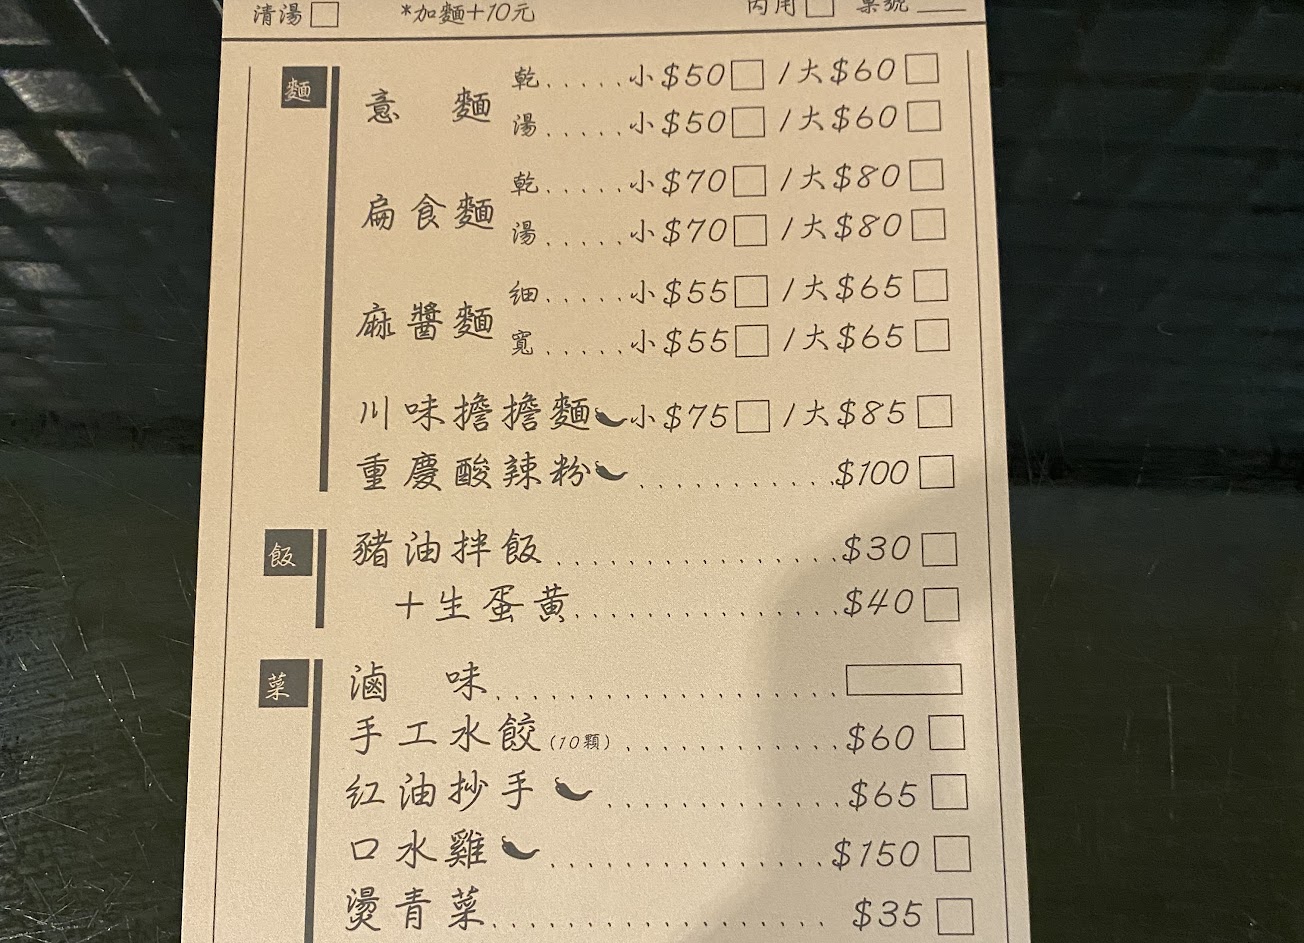 清湯 *加麵+10元 內用 桌號
麵
意 麵 乾.....小$50 /大$60
湯.....小$50 /大$60
扁食麵 乾.....小$70 /大$80
湯.....小$70 /大$80
麻醬麵 細.....小$55 /大$65
寬.....小$55 /大$65
川味擔擔麵 小$75 /大$85
重慶酸辣粉...........$100
飯
豬油拌飯...............$30
+生蛋黃..............$40
菜
滷 味..................
手工水餃(10顆)............$60
紅油抄手.............$65
口水雞...............$150
燙青菜..................$35